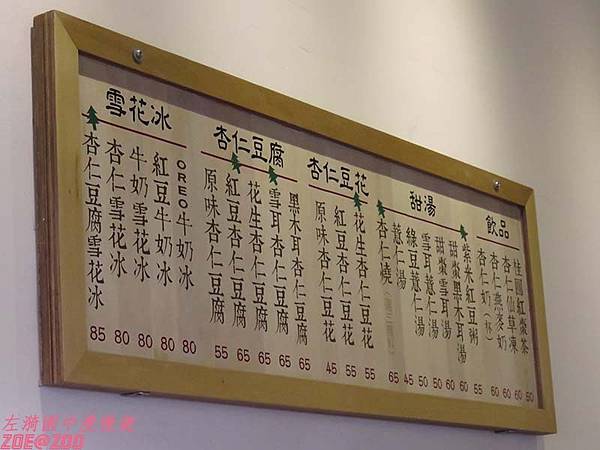 雪花冰
杏仁豆腐雪花冰 85
杏仁雪花冰 80
牛奶雪花冰 80
紅豆牛奶冰 80
OREO牛奶冰 80
杏仁豆腐
原味杏仁豆腐 55
紅豆杏仁豆腐 65
花生杏仁豆腐 65
雪耳杏仁豆腐 65
黑木耳杏仁豆腐 65
杏仁豆花
原味杏仁豆花 45
紅豆杏仁豆花 55
花生杏仁豆花 55
甜湯
杏仁燒 65
薏仁湯 45
綠豆薏仁湯 50
雪耳薏仁湯 50
甜棗雪耳湯 60
甜棗黑木耳湯 60
紫米紅豆粥 55
飲品
杏仁奶(杯) 60
杏仁燕麥奶 60
杏仁仙草凍 60
桂圓紅棗茶 50
ZOE@ZOO